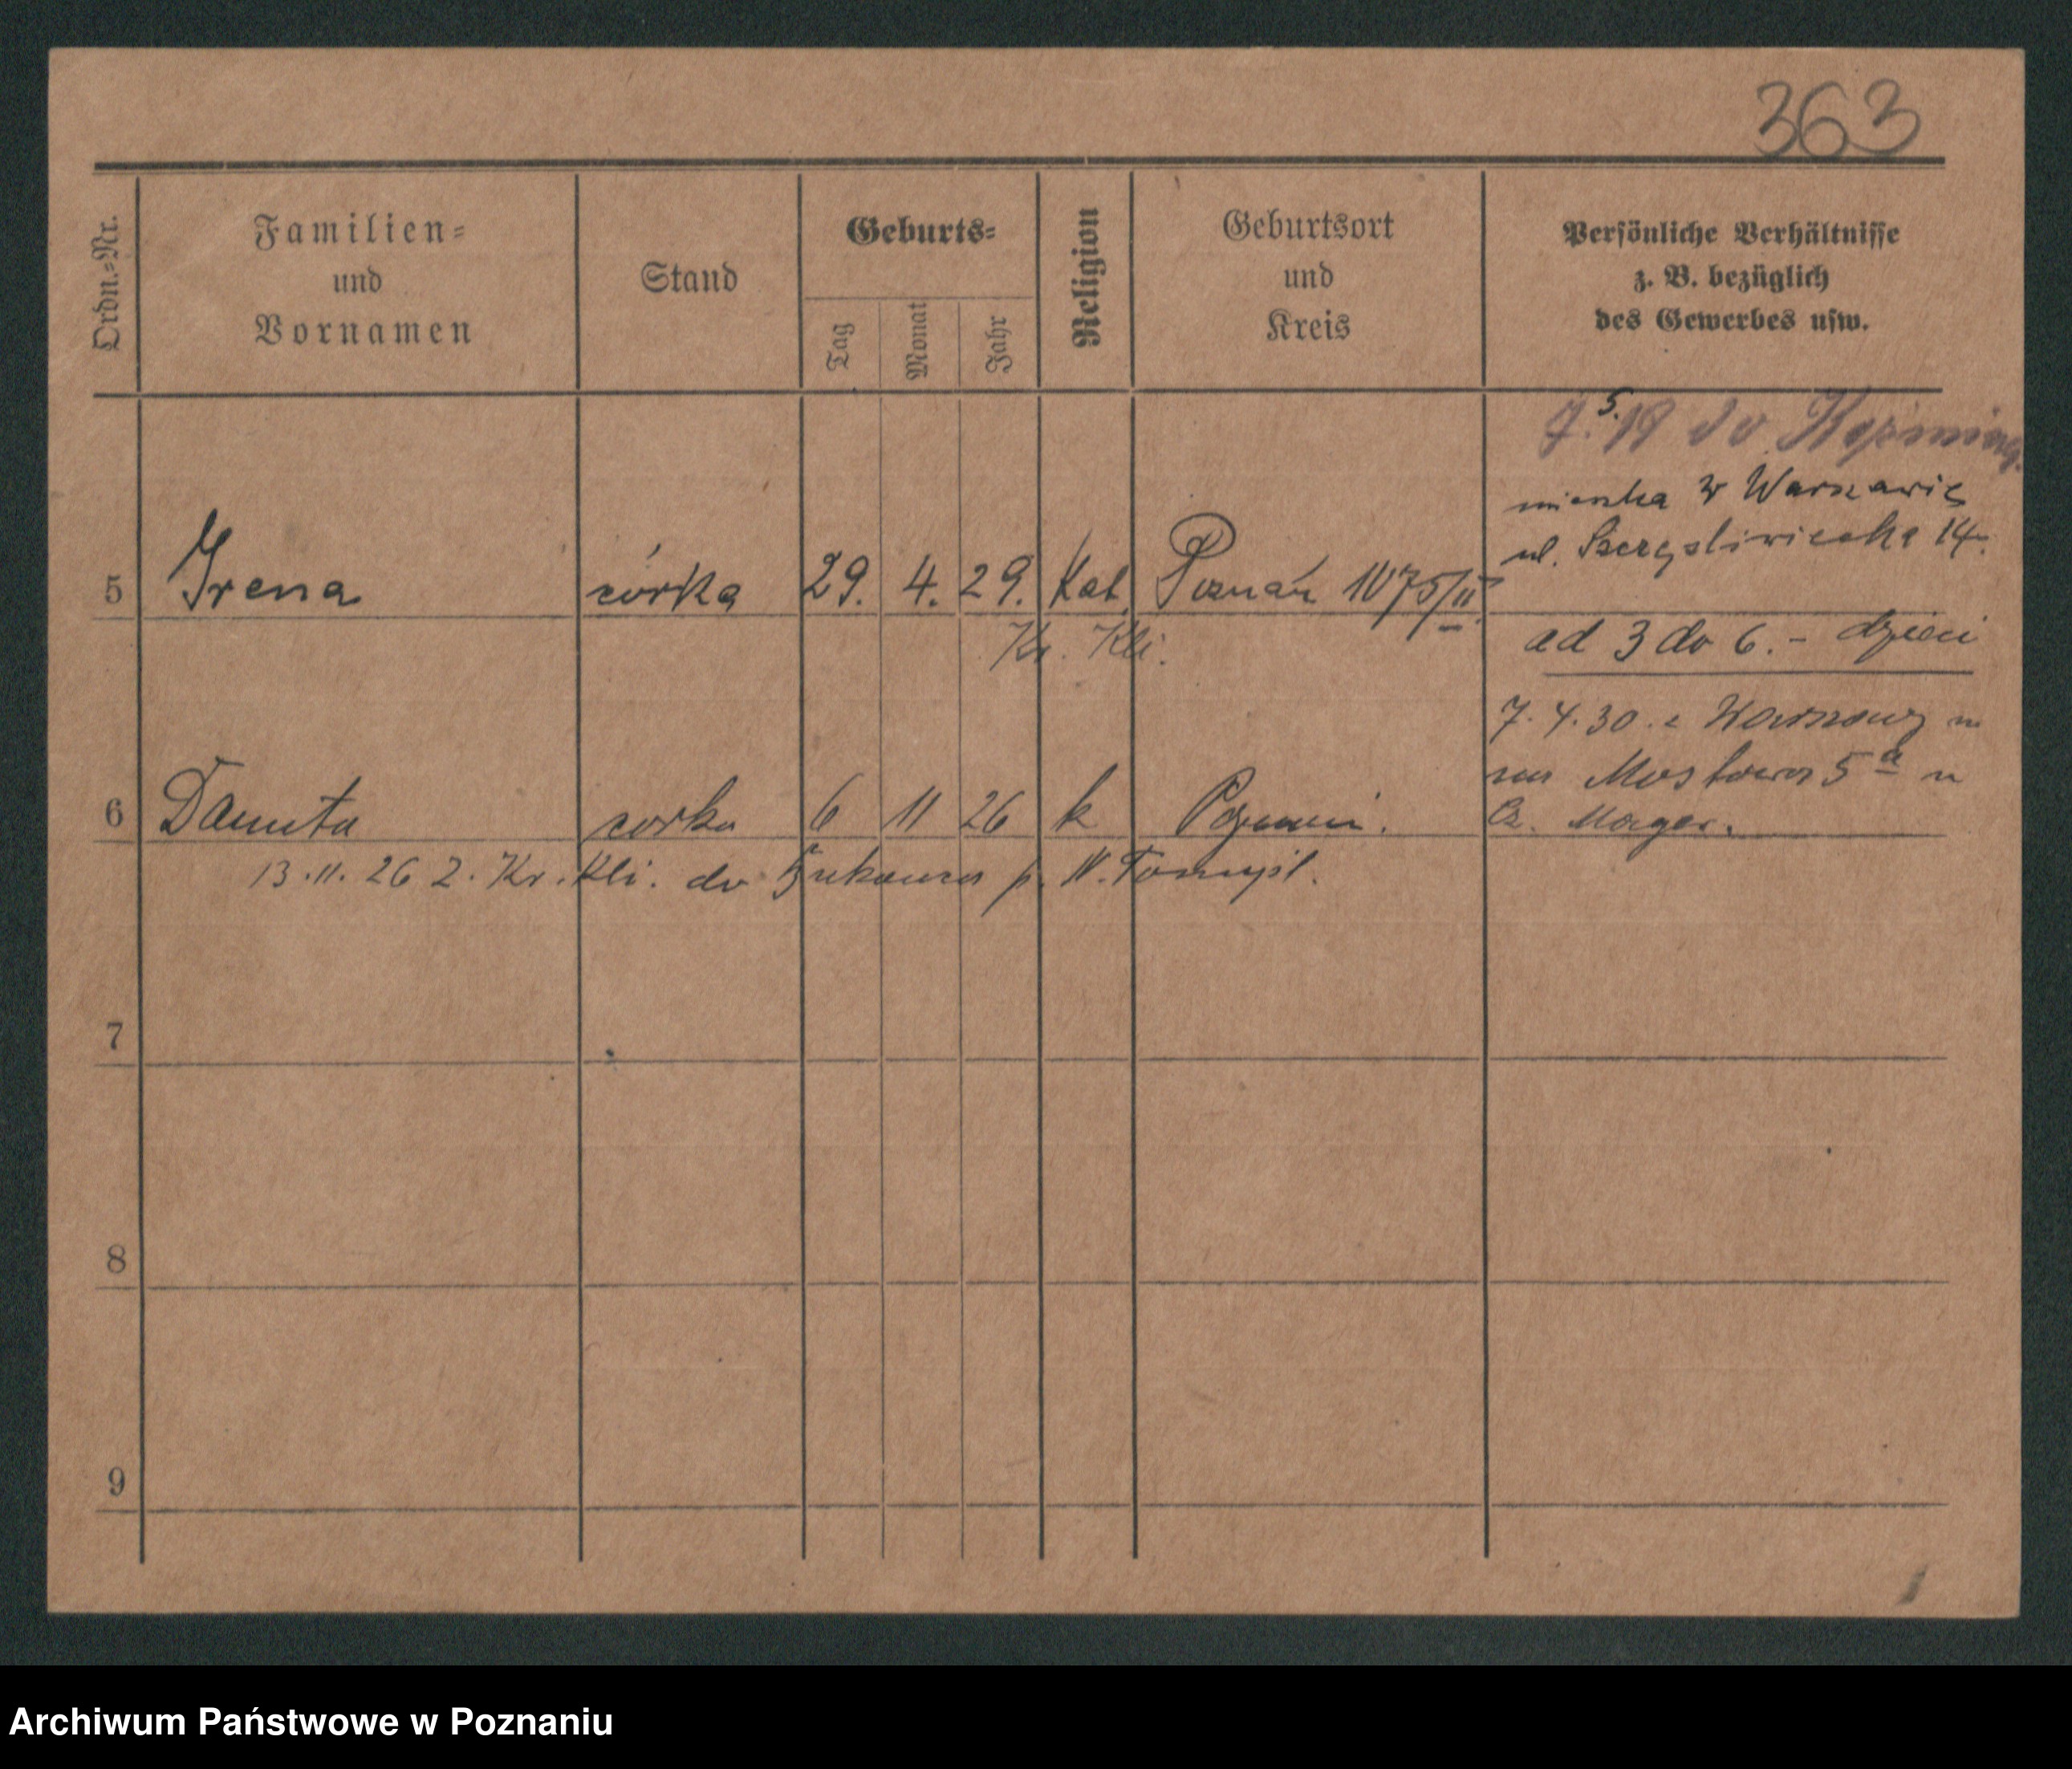 363
Ordn.-Nr.
Familien-
und
Vornamen
Stand
Geburts-
Tag
Monat
Jahr
Religion
Geburtsort
und
Kreis
Persönliche Verhältnisse
z. B. bezüglich
des Gewerbes usw.
7.5.19 do
w Warszawie
ul. 14.
5 Irena córka 29. 4. 29. Kat. Poznań 1075/II
Kr. Kli.
od 3 do 6. - dzieci
7.4.30. z Warszawy
na Mostowa 5a u
6 Danuta corka 6 11 26 k
Cz. Mager.
13.11.26 2. Kr. Kli. do p. N. Tomyśl.
7
8
9
Archiwum Państwowe w Poznaniu